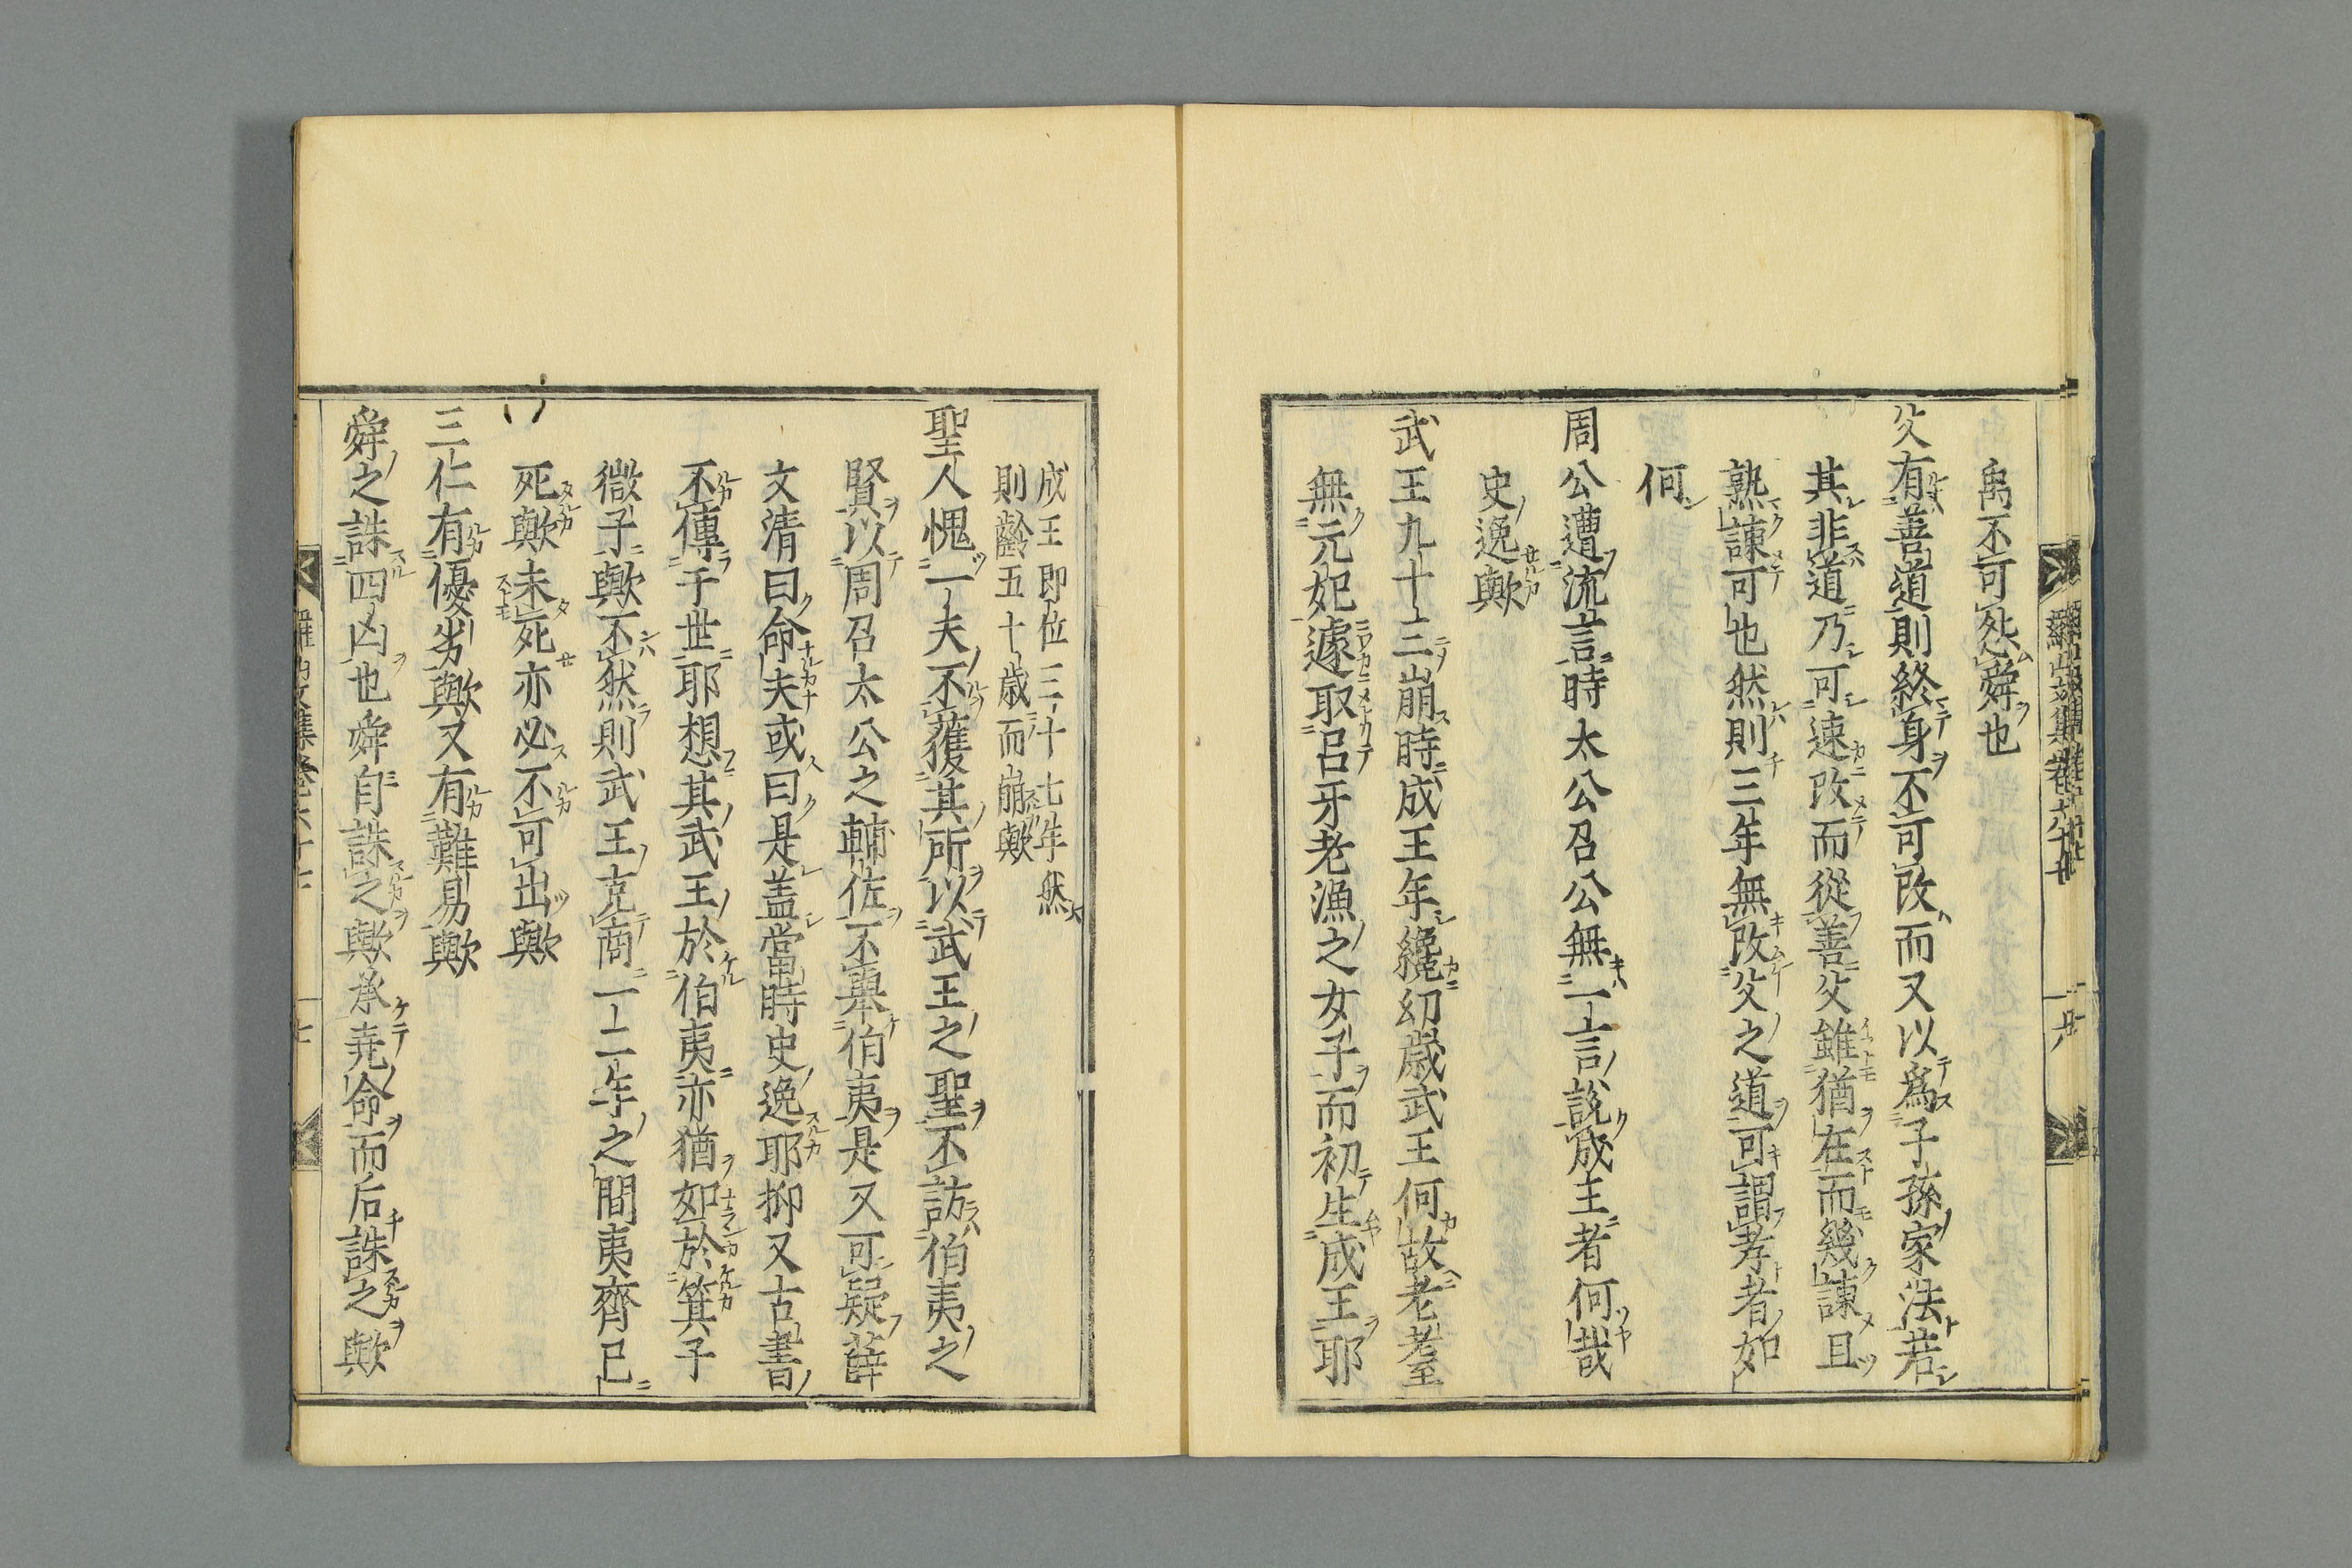 禹不可怨舜也
父有善道則終身不可改而又以爲子孫家法若
其非道乃可速改而從善父雖猶在而幾諫且
熟諫可也然則三年無改父之道可謂孝者如
何
周公遭流言時太公召公無一言說成王者何哉
史逸歟
武王九十三崩時成王年纔幼歲武王何故老耄
無元妃遽取呂牙老漁之女子而初生成王耶
成王即位三十七年然
則齡五十歲而崩歟
聖人愧一夫不獲其所以武王之聖不訪伯夷之
賢以周召太公之輔佐不舉伯夷是又可疑薛
文清曰命夫或曰是盖當時史逸耶抑又古書
不傳于世耶想其武王於伯夷亦猶如於箕子
微子歟不然則武王克商一二年之間夷齊已
死歟未死亦必不可出歟
三仁有優劣歟又有難易歟
舜之誅四凶也舜自誅之歟承堯命而后誅之歟